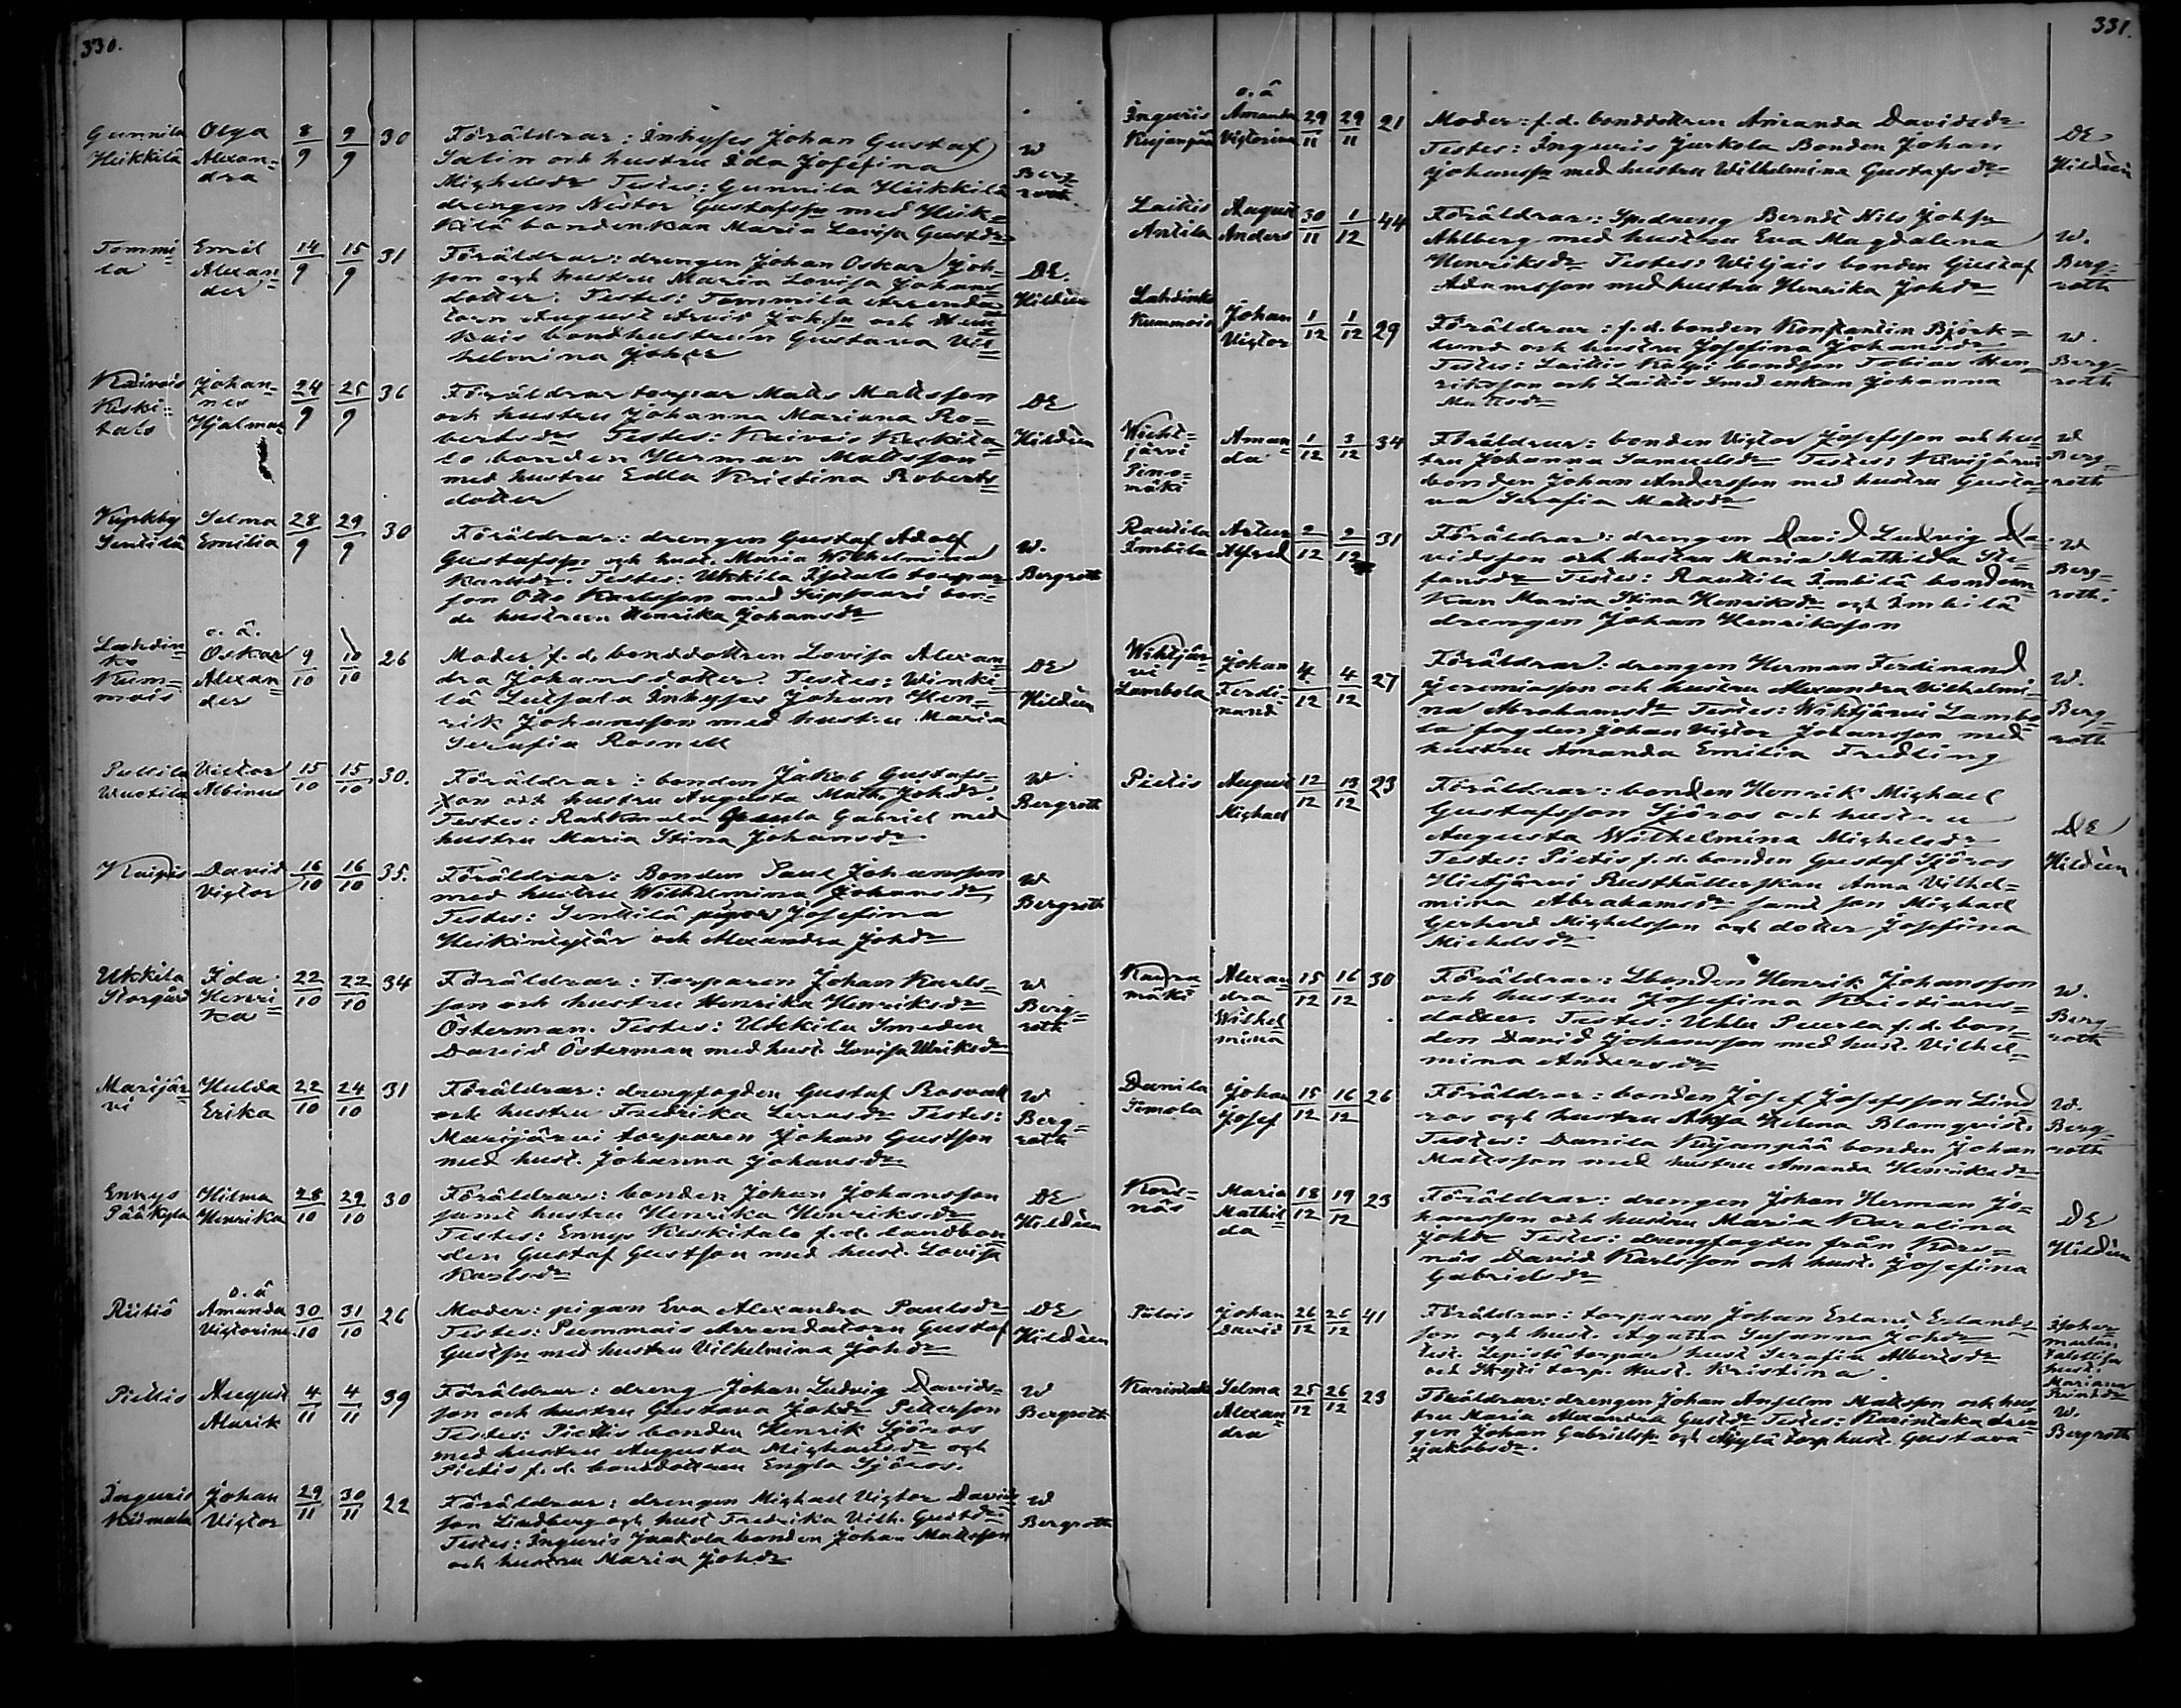 330.
Gunnila Heikkilä
Olga Alexan-dra
8/9 9/9 30
Föräldrar: Inhyses Johan Gustaf
Salin och hustru Ida Josefina
Michelsdr Testes: Gunnila Heikkilä
drengen Nestor Gustafssn med Heik-
kilä bondenkan Maria Lovisa Gustdr
W Berg-roth
Tommi-la
Emil Alexan-der
14/9 15/9 31
Föräldrar: drengen Johan Oskar Joh-
son och hustru Maria Lovisa Johans
dotter. Testes: Tommila Arrenda-
torn August Arvid Johsn och
kais bondhustrun Gustava Vil-
helmina Johdr
DE Hildén
Kaivois Keski-talo
Johan-nes Hjalmar
24/9 25/9 36
Föräldrar torpar Matts Mattsson
och hustru Johanna Mariana Ro-
bertsdr Testes: Kaivois Keskita-
lo bonden Herman Mattsson
med hustru Edla Kristina Roberts-
dotter
DE Hildén
Sentilä
Selma Emilia
28/9 29/9 30
Föräldrar: drengen Gustaf Adolf
Gustafssn och hust. Maria Wilhelmina
Karlsdr. Testes: Ukkila Isotalo torpar-
son Otto Karlsson med bon-
de hustrun Henrika Johansdr
W. Bergroth
Lahdin-ko Kum-mois
o. ä. Oskar Alexan-der
9/10 10/10 26
Moder f. d. bonddottren Lovisa Alexan-
dra Johansdotter. Testes: Winki-
lä Inhyses Johan Hen-
rik Johansson med hustru Maria
Serafia Rosnell
DE Hildén
Puttila Wuotila
Victor Albinus
15/10 15/10 30.
Föräldrar: bonden Jakob Gustafs-
son och hustru Augusta Math. Johdr.
Testes: Gabriel med
hustru Maria Stina Johansdr.
W. Bergroth
Kuipis
David Victor
16/10 16/10 35.
Föräldrar: Bonden Paul Johansson
med hustru Wilhelmina Johansdr
Testes: Sentilä pigorf Josefina
Heikintytär och Alexandra Johdr
W Bergroth
Ukkila Storgård
Ida Henri-ka
22/10 22/10 34
Föräldrar: Torparen Johan Karls-
son och hustru Henrika Henriksdr
Österman. Testes: Ukkila Smeden
David Österman med hust. Lovisa Ulriksdr
W Berg-roth
Marijär-vi
Hulda Erika
22/10 24/10 31
Föräldrar: drengfogden Gustaf Rosvall
och hustru Fredrika Testes:
Marijärvi torparen Johan Gustson
med hust. Johanna Johansdr
W Berg-roth
Ennys Pääkylä
Hilma Henrika
28/10 29/10 30
Föräldrar: bonden Johan Johansson
samt hustru Henrika Henriksdr
Testes: Ennys Keskitalo f. d. landbon-
den Gustaf Gustson med hust. Lovisa
Karlsdr
DE Hildén
Riitiö
o. ä Amanda Victorina
30/10 31/10 26
Moder: pigan Eva Alexandra Paulsdr
Testes: Pummais Arrendatorn Gustaf
Gustsn med hustru Vilhelmina Johdr
DE Hildén
Pietis
August Alarik
4/11 4/11 39
Föräldrar: dreng Johan Ludvig Davids-
son och hustru Gustava Johdr Petterson
Testes: Pietis bonden Henrik Sjöros
med hustru Augusta Michaelsdr och
Pietis f. d. bonddottren Engla Sjöros.
W Bergroth
Inguris Kiimala
Johan Victor
29/11 30/11 22
Föräldrar: drengen Michael Victor Davids
son Lindberg och hust Fredrika Vilh. Gustdr.
Testes: Inguris Jaakola bonden Johan Mattsson
och hustru Maria Johdr
W Bergroth
331.
Inguris Kujanpää
o. ä Amanda Victorina
29/11 29/11 21
Moder: f. d. bonddottren Amanda Davidsdr
Testes: Inguris Jurkola Bonden Johan
Johanssn med hustru Wilhelmina Gustafsdr
DE Hildén
Laitis Antila
August Anders
30/11 1/12 44
Föräldrar: Smdreng Berndt Nils Johsn
Ahlberg med hustru Eva Magdalena
Henriksdr Testes: Wiljais bonden Gustaf
Adamsson med hustru Henrika Johdr
W. Berg-roth
Lahdinko Kummois
Johan Victor
1/12 1/12 29
Föräldrar: f. d. bonden Konstantin Björk-
lund och hustru Josefina Johansdr
Testes: Laitis Kolpi bondson Tobias Hen-
riksson och Laitis Smedenkan Johanna
Mattsdr
W. Berg-roth
Wieht-järvi Timo-mäki
Aman-da
1/12 3/12 34
Föräldrar: bonden Victor Josefsson och hus-
tru Johanna Samuelsdr Testes: Kivijärvi
bonden Johan Andersson med hustru Gusta-
va Serafia Mattsdr
W Berg-roth
Rautila Imbilä
Artur Alfred
2/12 2/12 31
Föräldrar: drengen David Ludvig Da-
vidsson och hustru Maria Mathilda Ste-
fansdr Testes: Rautila Imbilä bonden-
kan Maria Stina Henriksdr och Imbilä
drengen Johan Henriksson
W Berg-roth.
Wihtjär-vi Lambola
Johan Ferdi-nand
4/12 4/12 27
Föräldrar: drengen Herman Ferdinand
Jeremiasson och hustru Alexandra Vilhelmi-
na Abrahamsdr Testes: Wihtjärvi Lambo-
la fogden Johan Victor Johansson med
hustru Amanda Emilia Fredling
W. Berg-roth
Pietis
August Michael
12/12 13/12 23
Föräldrar: bonden Henrik Michael
Gustafsson Sjöros och hustru
Augusta Wilhelmina Michelsdr
Testes: Pietis f. d. bonden Gustaf Sjöros
Hietjärvi Rusthållerskan Anna Vilhel-
mina Abrahamsdr samt son Michael
Gerhard Michelsson och dotter Josefina
Michelsdr
DE Hildén
Kaura-mäki
Alexan-dra Wilhel-mina
15/12 16/12 30
Föräldrar: Lbonden Henrik Johansson
och hustru Josefina Kristians-
dotter. Testes: Uhlu f. d. bon-
den David Johansson med hust. Vilhel-
mina Andersdr
W. Berg-roth
Danila Simola
Johan Josef
15/12 16/12 26
Föräldrar: bonden Josef Josefsson Lind-
ros och hustru Helena Blomqvist.
Testes: Danila Kujanpää bonden Johan
Mattsson med hustru Amanda Henriksdr
W. Berg-roth
Kors-näs
Maria Mathil-da
18/12 19/12 23
Föräldrar: drengen Johan Herman Jo-
hansson och hustru Maria Karolina
Johdr Testes: drengfogden från Kors-
näs David Karlsson och hust. Josefina
Gabrielsdr
DE Hildén
Johan David
26/12 26/12 41
Föräldrar: torparen Johan Erland Erlands-
son och hust. Agatha Susanna Johdr
test. Lepistö torpar hust Serafia Albertsdr
och torp. Hust. Kristina.
hust. Mariana
Karintaka
Selma Alexan-dra
25/12 26/12 23
Föräldrar: drengen Johan Anselm Mattsson och hus-
tru Maria Alexandra Gustdr Testes: Karintaka dren-
gen Johan Gabrielssn och torp. hust. Gustava
Jakobsdr.
W. Bergroth